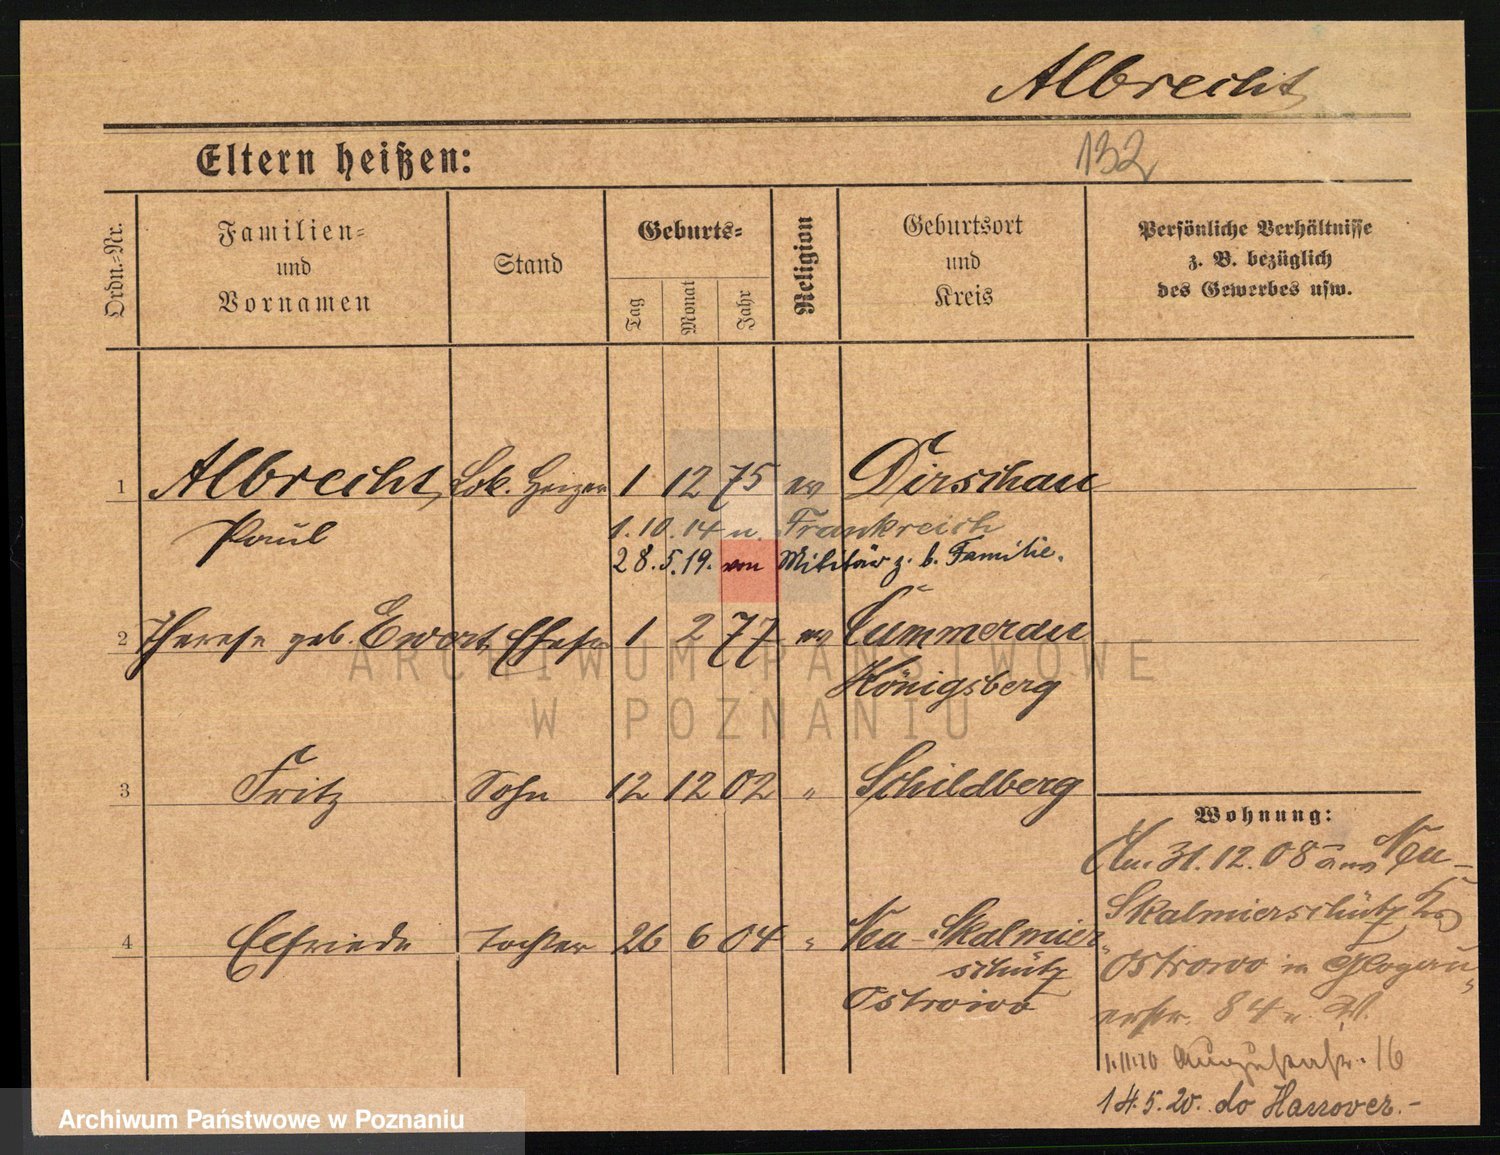 Albrecht
Eltern heißen:
132
Ordn.-Nr.
Familien-
und
Vornamen
Stand
Geburts-
Tag
Monat
Jahr
Religion
Geburtsort
und
Kreis
Persönliche Verhältnisse
z. B. bezüglich
des Gewerbes usw.
1 Albrecht, Lok. Heizer 1 12 75 ev Dirschau
Paul
1.10.14 n. Frankreich
28.5.19. von Militär z. b. Familie.
2 Therese geb. Ewert, Ehefr 1 2 77 ev Cummerau
Königsberg
3 Fritz Sohn 12 12 02 " Schildberg
4 Elfriede Tochter 26 6 04 " Neu-Skalmier-
schütz
Ostrowo
Wohnung:
31.12.08 aus Neu-
Skalmierschütz
Ostrowo in Glogau-
erstr. 84
16
14.5.20. do Hannover.-
ARCHIWUM PAŃSTWOWE
W POZNANIU
Archiwum Państwowe w Poznaniu